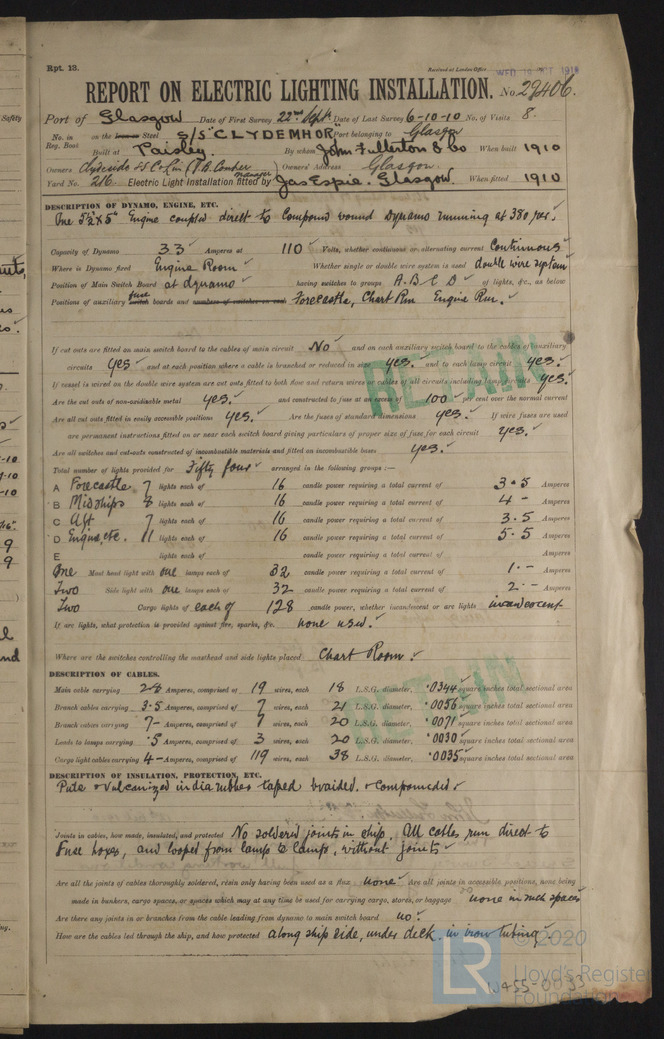 Rpt. 13.
Received at London Office WED
REPORT ON ELECTRIC LIGHTING INSTALLATION. No. 29406.
Port of Glasgow Date of First Survey 22nd Sept Date of Last Survey 6-10-10 No. of Visits 8.
No. in Reg. Book on the Iron or Steel S/S "CLYDEMHOR" Port belonging to Glasgow
Built at Paisley. By whom John Fullerton & Co When built 1910
Owners Clydeside SS Co Lim (J.B. Couper manager) Owners' Address Glasgow.
Yard No. 216. Electric Light Installation fitted by Jas Espie. Glasgow. When fitted 1910
DESCRIPTION OF DYNAMO, ENGINE, ETC.
One 5½"x5" Engine coupled direct to Compound wound Dynamo running at 380 revs.
Capacity of Dynamo 33 Amperes at 110 Volts, whether continuous or alternating current Continuous
Where is Dynamo fixed Engine Room Whether single or double wire system is used double wire system
Position of Main Switch Board at dynamo having switches to groups A.B.C.D of lights, &c., as below
Positions of auxiliary switch fuse boards and numbers of switches on each Forecastle, Chart Rm Engine Rm.
If cut outs are fitted on main switch board to the cables of main circuit No and on each auxiliary switch board to the cables of auxiliary
circuits yes and at each position where a cable is branched or reduced in size yes. and to each lamp circuit yes.
If vessel is wired on the double wire system are cut outs fitted to both flow and return wires or cables of all circuits including lamp yes.
Are the cut outs of non-oxidizable metal yes. and constructed to fuse at an excess of 100 per cent over the normal current
Are all cut outs fitted in easily accessible positions yes. Are the fuses of standard dimensions yes. If wire fuses are used
are permanent instructions fitted on or near each switch board giving particulars of proper size of fuse for each circuit yes.
Are all switches and cut-outs constructed of incombustible materials and fitted on incombustible bases yes.
Total number of lights provided for Fifty four arranged in the following groups :—
A Forecastle 7 lights each of 16 candle power requiring a total current of 3.5 Amperes
B Midships 8 lights each of 16 candle power requiring a total current of 4 - Amperes
C Aft 7 lights each of 16 candle power requiring a total current of 3.5 Amperes
D Engine, etc. 11 lights each of 16 candle power requiring a total current of 5.5 Amperes
E lights each of candle power requiring a total current of Amperes
One Mast head light with one lamps each of 32 candle power requiring a total current of 1.- Amperes
Two Side light with one lamps each of 32 candle power requiring a total current of 2.- Amperes
Two Cargo lights of each of 128 candle power, whether incandescent or arc lights incandescent
If arc lights, what protection is provided against fire, sparks, &c. none used.
Where are the switches controlling the masthead and side lights placed Chart Room.
DESCRIPTION OF CABLES.
Main cable carrying 28 Amperes, comprised of 19 wires, each 18 L.S.G. diameter, .0344 square inches total sectional area
Branch cables carrying 3.5 Amperes, comprised of 7 wires, each 21 L.S.G. diameter, .0056 square inches total sectional area
Branch cables carrying 7- Amperes, comprised of 7 wires, each 20 L.S.G. diameter, .0071 square inches total sectional area
Leads to lamps carrying .5 Amperes, comprised of 3 wires, each 20 L.S.G. diameter, .0030 square inches total sectional area
Cargo light cables carrying 4- Amperes, comprised of 119 wires, each 38 L.S.G. diameter, .0035 square inches total sectional area
DESCRIPTION OF INSULATION, PROTECTION, ETC.
Pure & vulcanized india rubber taped braided. & compounded
Joints in cables, how made, insulated, and protected No soldered joints in ship. All cables run direct to
Fuse boxes, and looped from lamp to lamp, without joints
Are all the joints of cables thoroughly soldered, resin only having been used as a flux none Are all joints in accessible positions, none being
made in bunkers, cargo spaces, or spaces which may at any time be used for carrying cargo, stores, or baggage none in such spaces
Are there any joints in or branches from the cable leading from dynamo to main switch board no.
How are the cables led through the ship, and how protected along ship side, under deck. in iron tubing
RETAIN
RETAIN
LR
© 2020
Lloyd's Register
Foundation
W455-0033